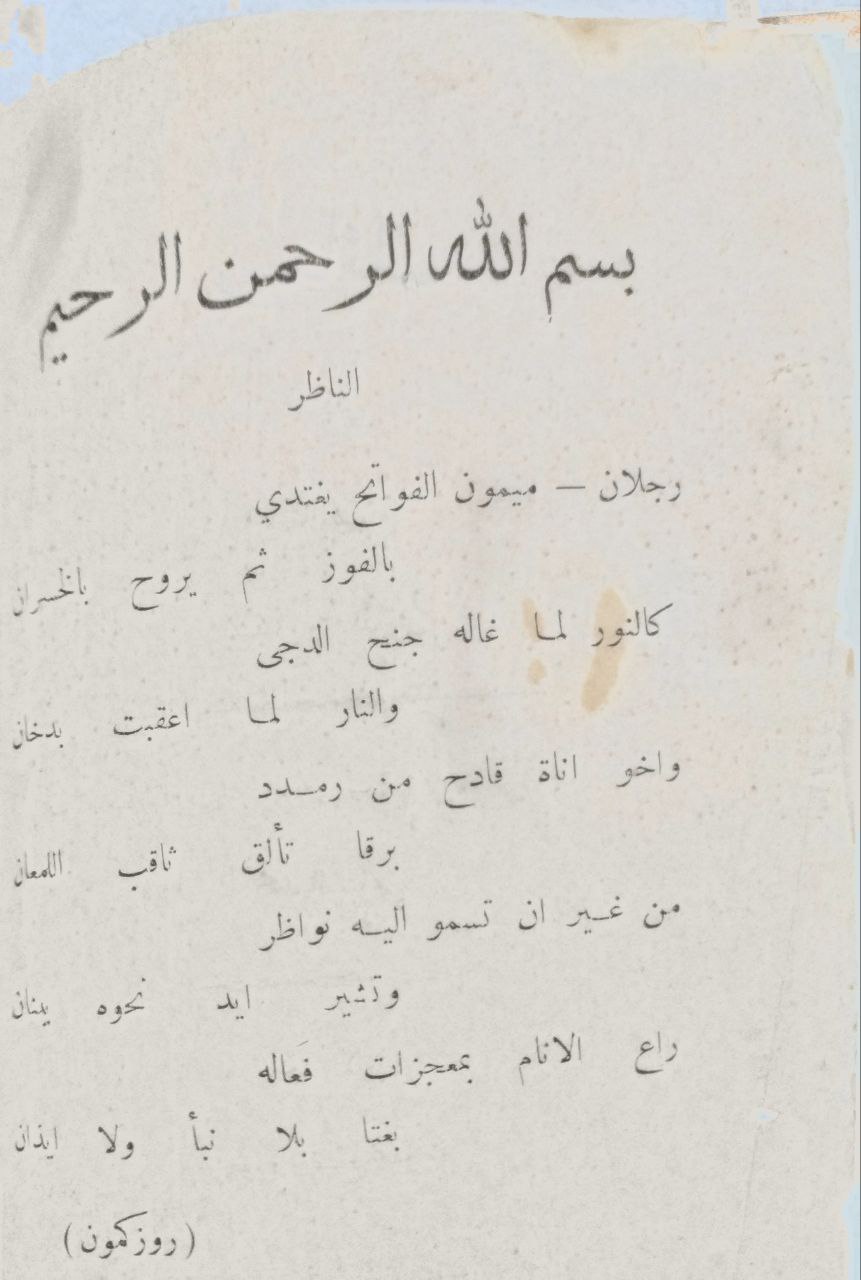 بسم الله الرحمن الرحيم
الناظر
رجلان — ميمون الفواتح يغتدي
بالفوز ثم يروح بالخسران
كالنور لما غاله جنح الدجى
والنار لما اعقبت بدخان
واخو اناة قادح من رمدد
برقا تألق ثاقب اللمعان
من غير ان تسمو اليه نواظر
وتشير ايد نحوه ببنان
راع الانام بمعجزات فَعاله
بغتا بلا نبأ ولا ايذان
(روزكمون)